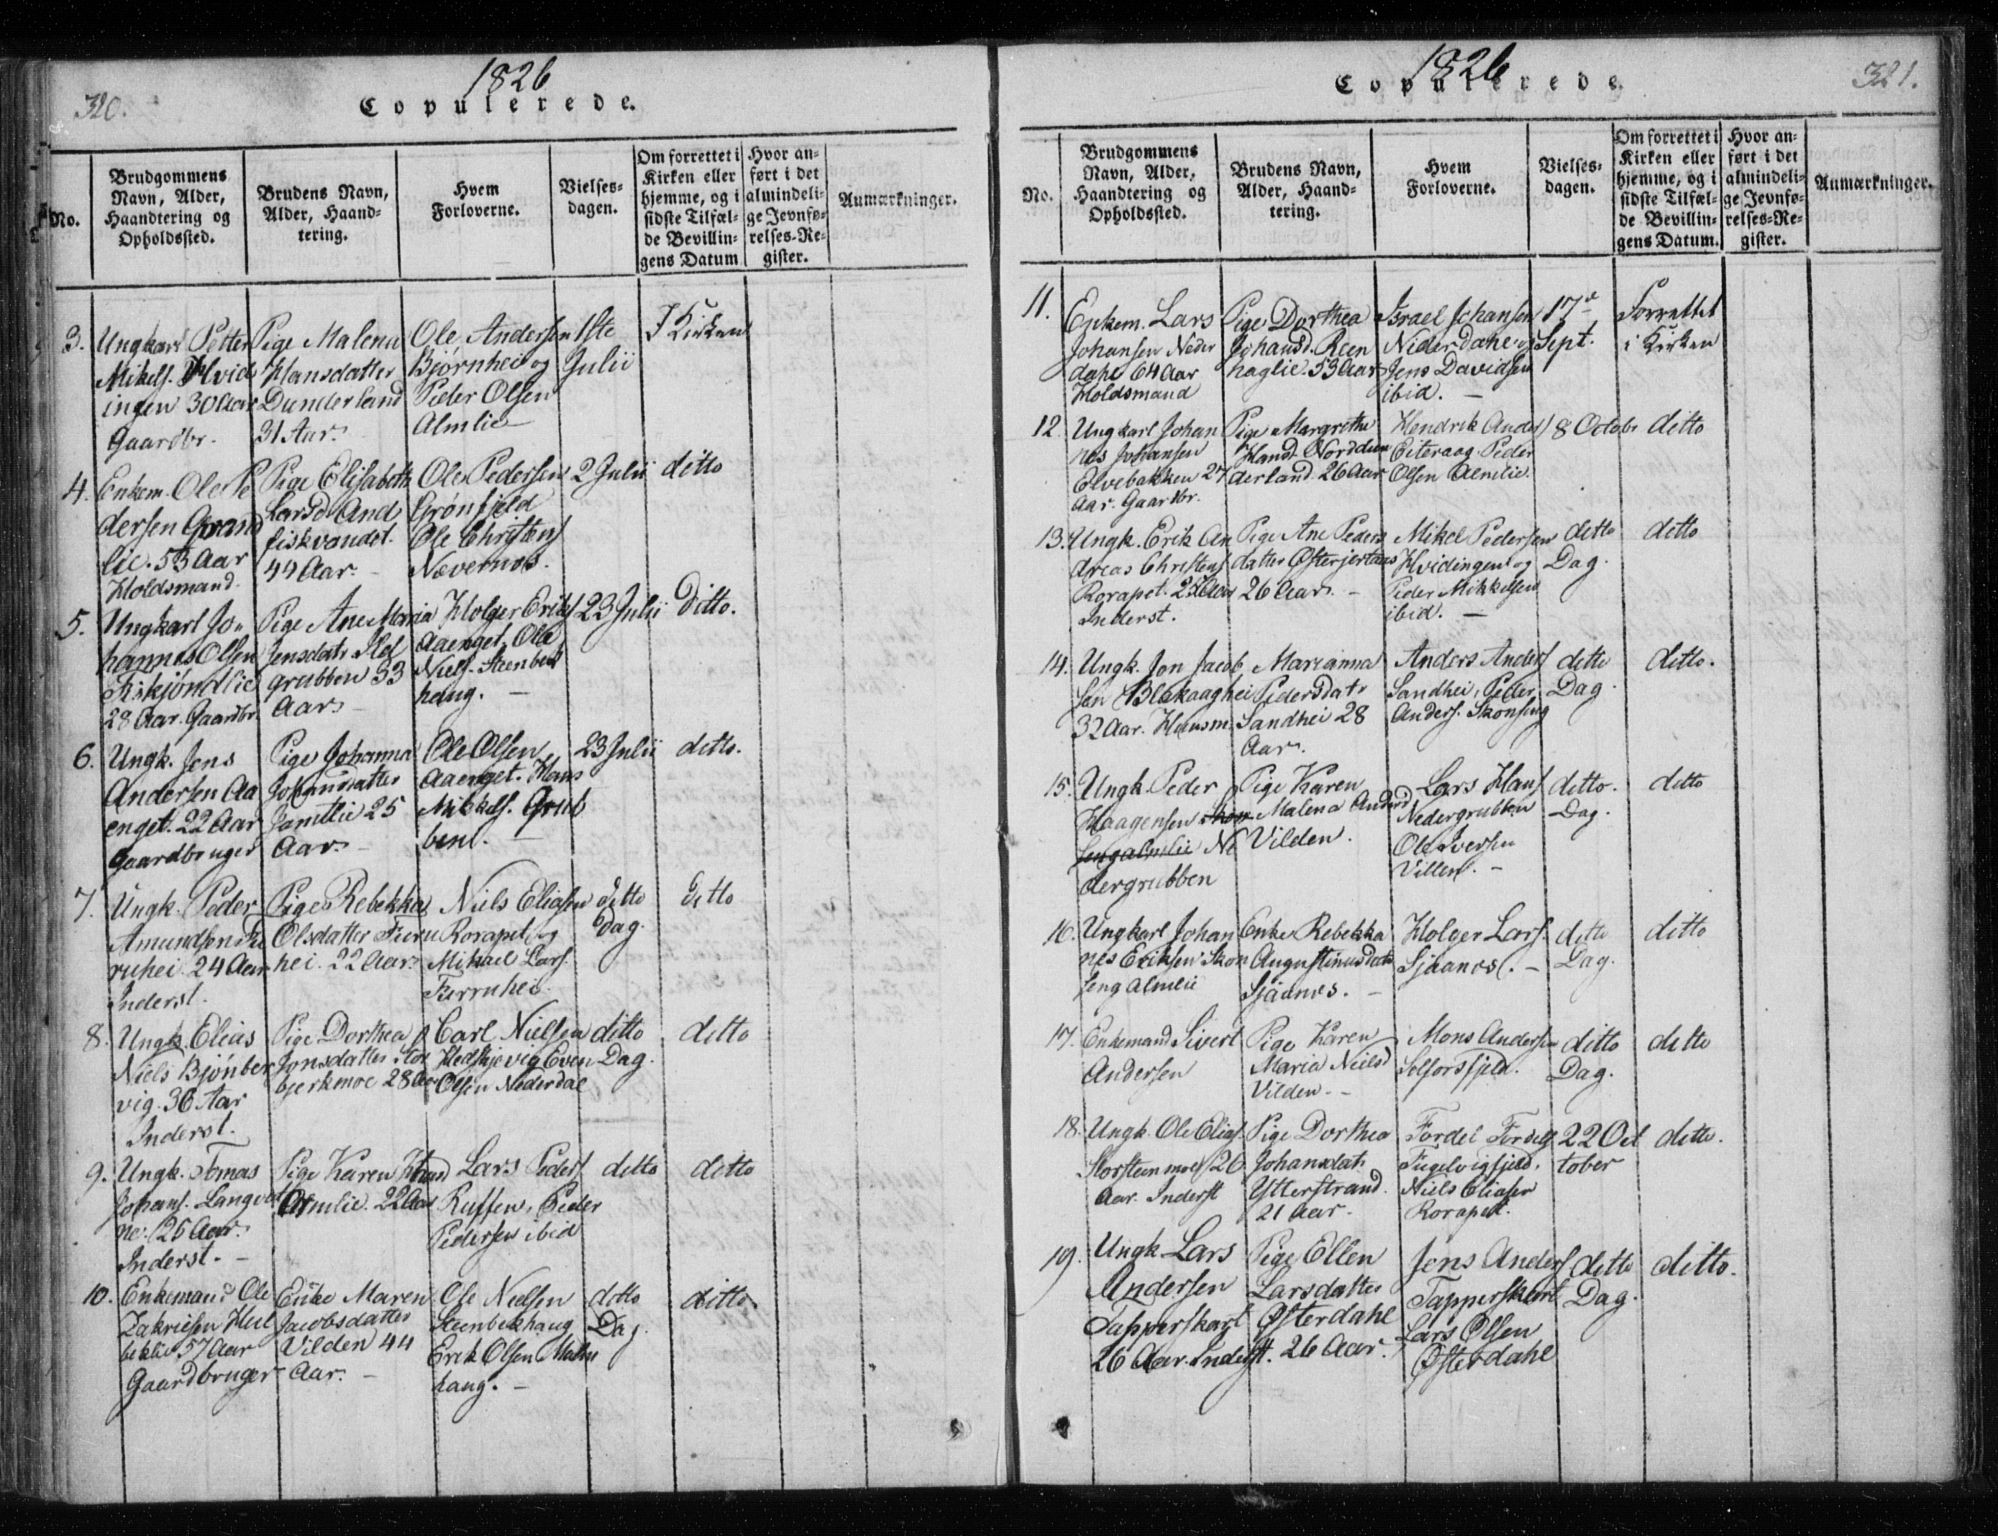 1826
320.
Copulerede.
No.
Brudgommens
Navn, Alder,
Haandtering og
Opholdssted.
Brudens Navn,
Alder, Haand-
tering.
Hvem
Forloverne.
Vielses-
dagen.
Om forrettet i
Kirken eller
hjemme, og i
sidste Tilfæl-
de Bevillin-
gens Datum
Hvor an-
ført i det
almindeli-
ge Jevnfø-
relses-Re-
gister.
Anmærkninger.
3.
Ungkarl Petter
Mikels. Hvid
ingen 30 Aar
Gaardbr.
Pige Malena
Hansdatter
Dunderland
31 Aar.
Ole Andersen
Bjørnhei og
Peder Olsen
Almlie
1ste
Julii
I Kirken
4.
Enkem. Ole Pe
dersen Grand
lie. 53 Aar
Holdsmand.
Pige Elisabeth
Larsd. And
fiskvandet.
44 Aar.
Ole Pedersen
Grønfjeld
Ole Christens
Nævernæs.
2 Julii
ditto
5.
Ungkarl Jo-
hannes Olsen
Fiskjøndlie
28 Aar. Gaardbr.
Pige Ane Maria
Jensdatr
grubben 33
Aar.
Holger Eriks
Aaenget. Ole
Niels. Steenbek
haug.
23 Julii
Ditto.
6.
Ungk. Jens
Andersen Aa
enget. 22 Aar
Gaardbruger
Pige Johanna
Johansdatter
Jamtlie 25
Aar.
Ole Olsen
Aaenget. Hans
Mikkels. Grub
ben.
23 Julii
ditto.
7.
Ungk. Peder
Amundsen Fu
ruhei. 24 Aar
Inderst.
Pige Rebekka
Olsdatter Furu
hei. 22 Aar.
Niels Eliasen
Rorapet og
Mikael Lars.
Furruhei.
ditto
Dag.
ditto
8.
Ungk. Elias
Niels Bjønber
vig. 36 Aar
Inderst.
Pige Dorthea
Jonsdatter Stor
bjerkmoe 28 Aar
Carl Nielsen
Hedskjevig Even
Olsen Nederdal
ditto
Dag.
ditto
9.
Ungk. Tomas
Johans. Langved
ne. 26 Aar.
Inderst.
Pige Karen Hansd
Almlie. 22 Aar
Lars Peders.
Ruffen, Peder
Pedersen ibid
ditto
ditto
10.
Enkemand Ole
Zakriesen
beklie 57 Aar
Gaardbruger
Enke Maren
Jacobsdatter
Vilden 44
Aar.
Ole Nielsen
Steenbekhaug
Erik Olsen
haug.
ditto
Dag
ditto
1826
321.
Copulerede.
No.
Brudgommens
Navn, Alder,
Haandtering og
Opholdssted.
Brudens Navn,
Alder, Haand-
tering.
Hvem
Forloverne.
Vielses-
dagen.
Om forrettet i
Kirken eller
hjemme, og i
sidste Tilfæl-
de Bevillin-
gens Datum.
Hvor an-
ført i det
almindeli-
ge Jevnfø-
relses-Re-
gister.
Anmærkninger.
11.
Enkem. Lars
Johansen Neder
dahl 64 Aar
Holdsmand
Pige Dorthea
Johansd. Reen
haglie. 53 Aar
Israel Johansen
Niderdahl og
Jens Davidsen
ibid.
17de
Sept.
Forrettet
i Kirken
12.
Ungkarl Johan
nes Johansen
Elvebakken 27
Aar. Gaardbr.
Pige Margrethe
Hansd. Norddun
derland. 26 Aar
Hendrik Anders
Eiteraag. Peder
Olsen Almlie.
8 Octobr
ditto
13.
Ungk. Erik An
dreas Christens
Rorapet. 25 Aar
Inderst.
Pige Ane Peders
datter
26 Aar.
Mikel Pedersen
Hvidingen og
Peder Mikkelsen
ibid.
ditto
Dag.
ditto
14.
Ungk. Jon Jacob
sen Blakaaghei
32 Aar. Huusm.
Marianna
Pedersdatr
Sandhei 28
Aar.
Anders Anders
Sandhei, Peder
Anders. Skonseng
ditto
Dag.
ditto.
15.
Ungk. Peder
Haagensen Skon
seng almlie Ne
dergrubben
Pige Karen
Malena Andersd
Vilden.
Lars Hans
Nedergrubben
Ole Iversen
Villen.
ditto.
Dag.
ditto
16.
Ungkarl Johan
nes Eriksen Skon
seng almlie
Enke Rebekka
Augustinusdatr
Sjaanes.
Holger Lars.
Sjaanes.
ditto
Dag.
ditto
17.
Enkemand Sivert
Andersen
Pige Karen
Maria Nielsd
Vilden.
Mons Andersen
Selforsfjeld.
ditto
Dag.
ditto
18.
Ungk. Ole Elias
Storsteenmoe 26
Aar. Inderst
Pige Dorthea
Johansdatr
Ytterstrand.
21 Aar.
Fordel Fordels
Fugelvigfjeld,
Niels Eliasen
Rorapet.
22 Oct
tober
ditto.
19.
Ungk. Lars
Andersen
Tapperskart
26 Aar. Inderst.
Pige Ellen
Larsdatter
Østerdahl
26 Aar.
Jens Anders
Tapperskart
Lars Olsen
Østerdahl
ditto
Dag.
ditto.